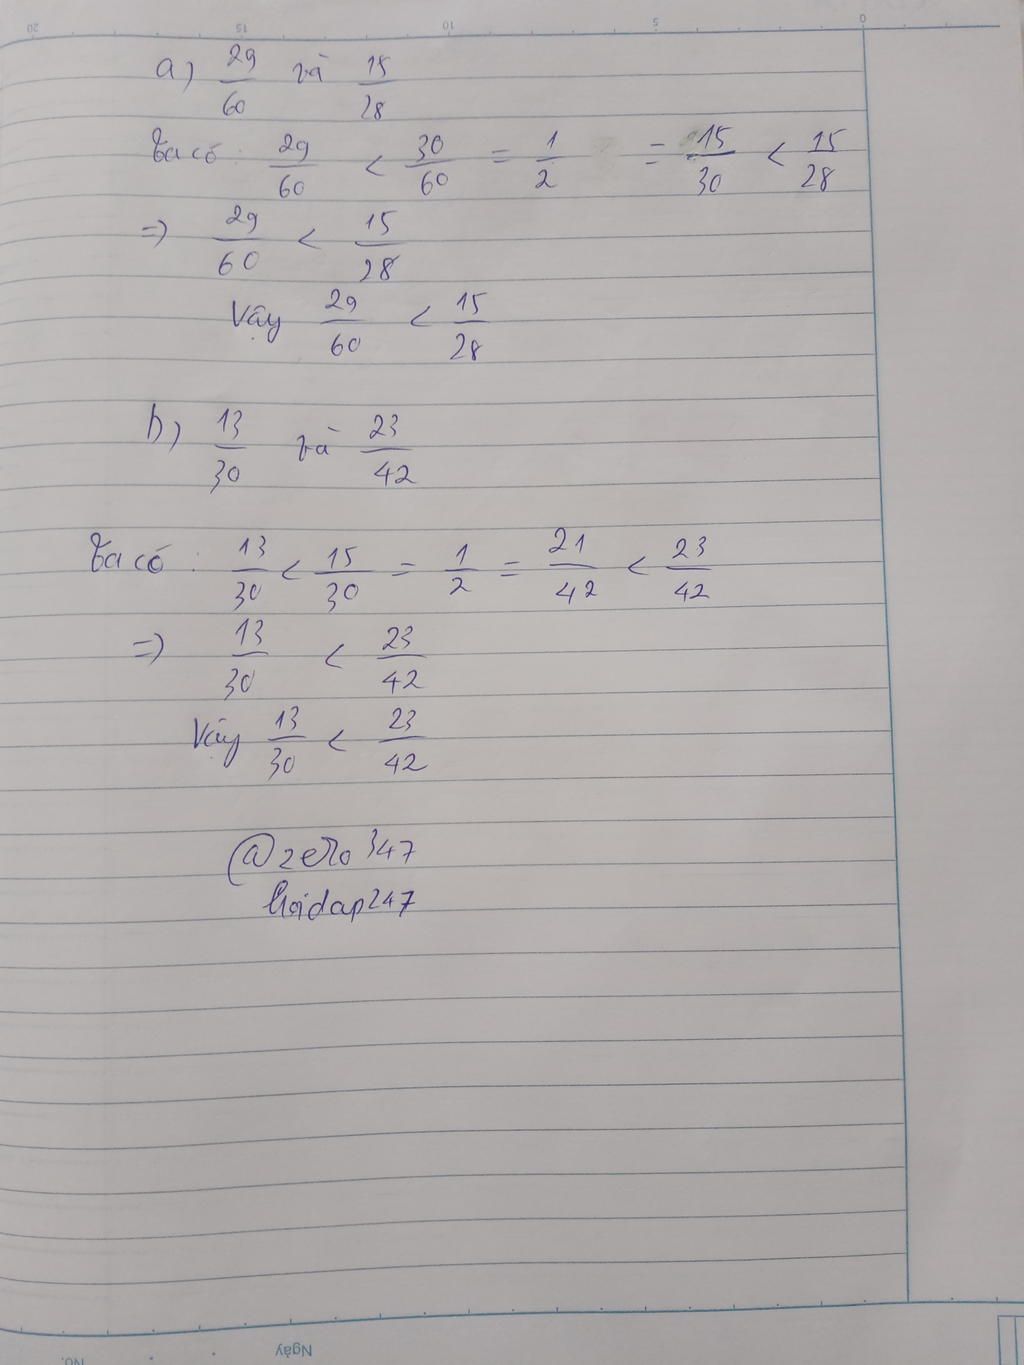 a) 29/60 và 15/28
Ta có: 29/60 < 30/60 = 1/2 = 15/30 < 15/28
=> 29/60 < 15/28
Vậy 29/60 < 15/28
b) 13/30 và 23/42
Ta có: 13/30 < 15/30 = 1/2 = 21/42 < 23/42
=> 13/30 < 23/42
Vậy 13/30 < 23/42
@zero347
hoidap247
20 15 10 5 0
Ngày
No.